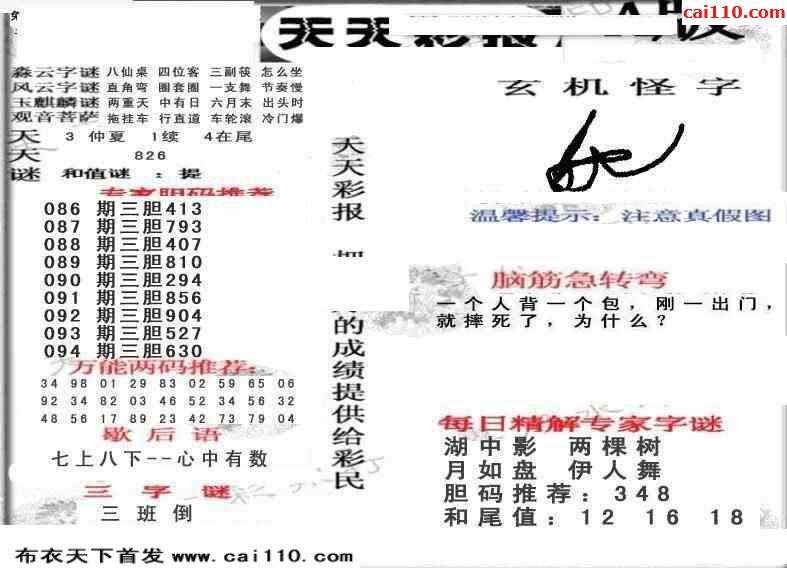 cai110.com
天天彩报 A版
淼云字谜 八仙桌 四位客 三副筷 怎么坐
风云字谜 直角弯 圈套圈 一支舞 节奏慢
玉麒麟谜 两重天 中有日 六月末 出头时
观音菩萨 拖挂车 行直道 车轮滚 冷门爆
天 3 仲夏 1续 4在尾
天 826
谜 和值谜 ：提
专家胆码推荐
086 期三胆413
087 期三胆793
088 期三胆407
089 期三胆810
090 期三胆294
091 期三胆856
092 期三胆904
093 期三胆527
094 期三胆630
万能两码推荐：
34 98 01 29 83 02 59 65 06
92 34 82 03 46 52 34 56 32
48 56 17 89 23 42 73 79 04
歇后语
七上八下--心中有数
三字谜
三班倒
天天彩报
的成绩提供给彩民
玄机怪字
温馨提示：注意真假图
脑筋急转弯
一个人背一个包，刚一出门，
就摔死了，为什么？
每日精解专家字谜
湖中影 两棵树
月如盘 伊人舞
胆码推荐：348
和尾值：12 16 18
布衣天下首发 www.cai110.com